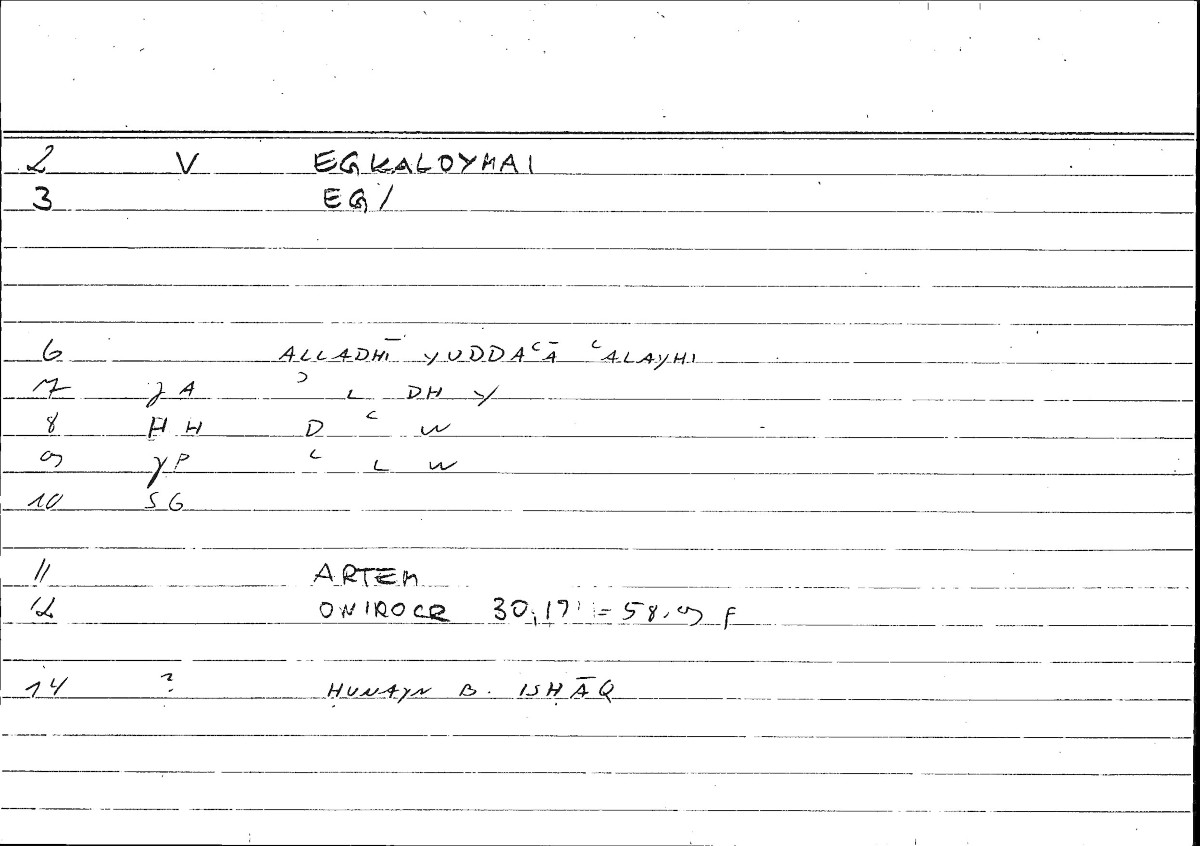 2 V EGKALOYMAI
3 EG/
6 ALLADHĪ YUDDAʿĀ ʿALAYHI
7 JA ʾ L DH Y
8 HH D ʿ W
9 YP ʿ L W
10 SG
11 ARTEM
12 ONIROCR 30,17 = 58.9 F
14 ? ḤUNAYN B. ISḤĀQ